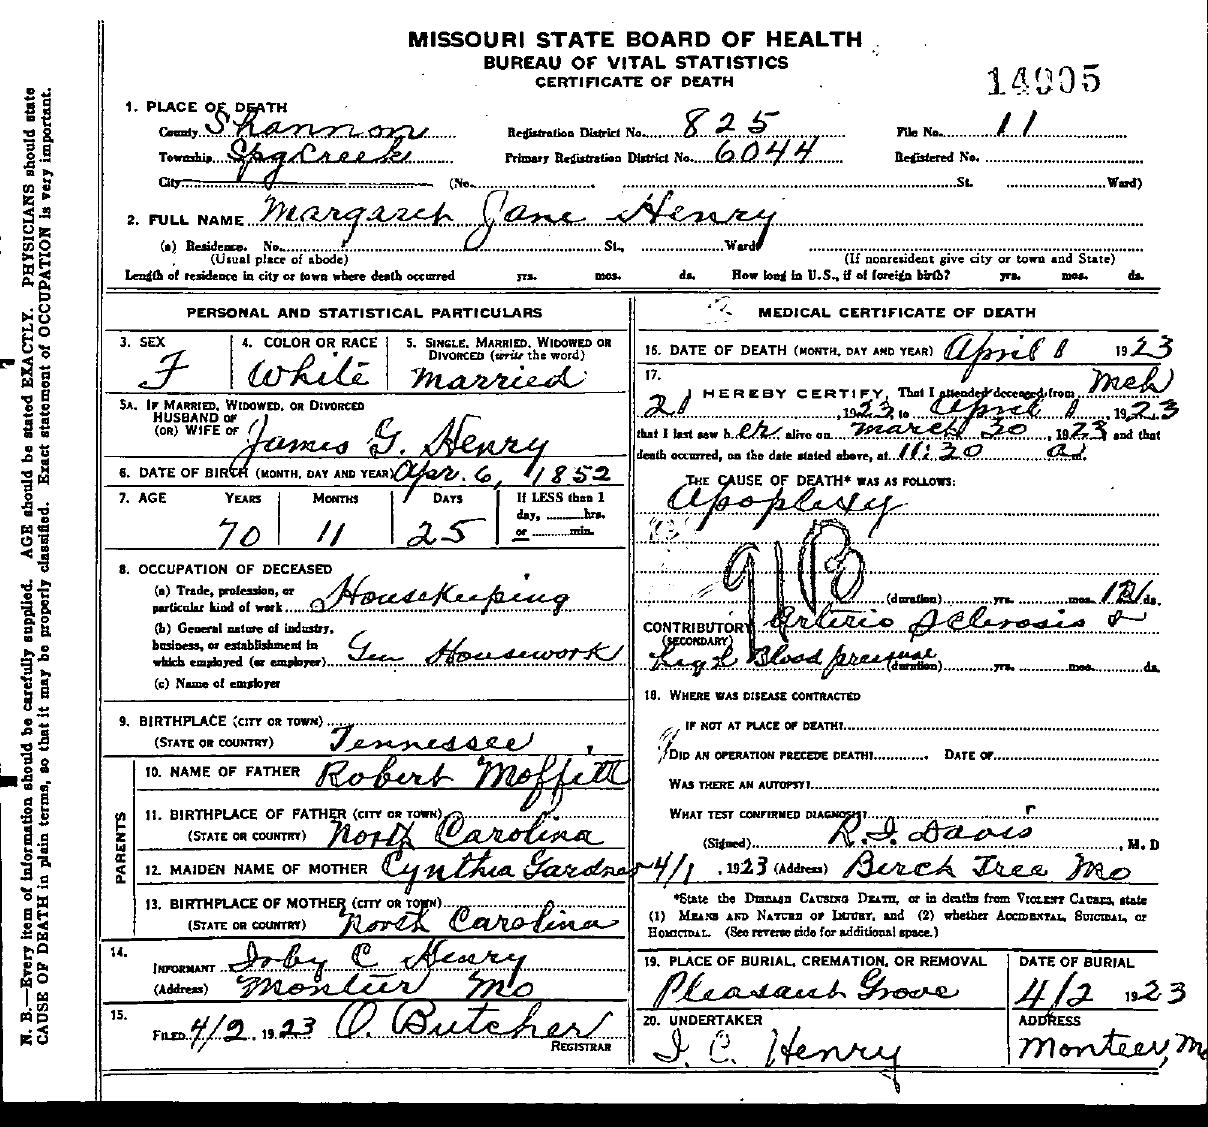 MISSOURI STATE BOARD OF HEALTH
BUREAU OF VITAL STATISTICS
CERTIFICATE OF DEATH
14905
1. PLACE OF DEATH
County Shannon Registration District No. 825 File No. 11
Township Spg Creek Primary Registration District No. 6044 Registered No.
City (No. St. Ward)
2. FULL NAME Margaret Jane Henry
(a) Residence. No. St., Ward
(Usual place of abode) (If nonresident give city or town and State)
Length of residence in city or town where death occurred yrs. mos. ds. How long in U.S., if of foreign birth? yrs. mos. ds.
PERSONAL AND STATISTICAL PARTICULARS
3. SEX 4. COLOR OR RACE 5. SINGLE, MARRIED, WIDOWED OR
DIVORCED (write the word)
F White Married
5A. IF MARRIED, WIDOWED, OR DIVORCED
HUSBAND OF
(OR) WIFE OF James G. Henry
6. DATE OF BIRTH (MONTH, DAY AND YEAR) Apr. 6, 1852
7. AGE YEARS MONTHS DAYS If LESS than 1
day, hrs.
or min.
70 11 25
8. OCCUPATION OF DECEASED
(a) Trade, profession, or
particular kind of work Housekeeping
(b) General nature of industry,
business, or establishment in
which employed (or employer) Gen Housework
(c) Name of employer
9. BIRTHPLACE (CITY OR TOWN)
(STATE OR COUNTRY) Tennessee
PARENTS
10. NAME OF FATHER Robert Moffitt
11. BIRTHPLACE OF FATHER (CITY OR TOWN)
(STATE OR COUNTRY) North Carolina
12. MAIDEN NAME OF MOTHER Cynthia Gardner
13. BIRTHPLACE OF MOTHER (CITY OR TOWN)
(STATE OR COUNTRY) North Carolina
14.
INFORMANT Irby C Henry
(Address) Montier Mo
15.
FILED 4/2, 1923 O. Butcher
REGISTRAR
MEDICAL CERTIFICATE OF DEATH
16. DATE OF DEATH (MONTH, DAY AND YEAR) April 1 1923
17.
I HEREBY CERTIFY, That I attended deceased from Mch
21, 1923, to April 1, 1923
that I last saw her alive on March 30, 1923 and that
death occurred, on the date stated above, at 11:30 a.
THE CAUSE OF DEATH* WAS AS FOLLOWS:
Apoplexy
(duration) yrs. mos. 12 ds.
CONTRIBUTORY Arterio Sclerosis &
(SECONDARY)
high Blood pressure (duration) yrs. mos. ds.
18. WHERE WAS DISEASE CONTRACTED
IF NOT AT PLACE OF DEATH?
DID AN OPERATION PRECEDE DEATH? DATE OF
WAS THERE AN AUTOPSY?
WHAT TEST CONFIRMED DIAGNOSIS?
(Signed) R. I. Davis, M. D
4/1, 1923 (Address) Birch Tree Mo
*State the DISEASE CAUSING DEATH, or in deaths from VIOLENT CAUSES, state
(1) MEANS AND NATURE OF INJURY, and (2) whether ACCIDENTAL, SUICIDAL, or
HOMICIDAL. (See reverse side for additional space.)
19. PLACE OF BURIAL, CREMATION, OR REMOVAL DATE OF BURIAL
Pleasant Grove 4/2 1923
20. UNDERTAKER ADDRESS
I. C. Henry Monteer, Mo
N. B.—Every item of information should be carefully supplied. AGE should be stated EXACTLY. PHYSICIANS should state
CAUSE OF DEATH in plain terms, so that it may be properly classified. Exact statement of OCCUPATION is very important.